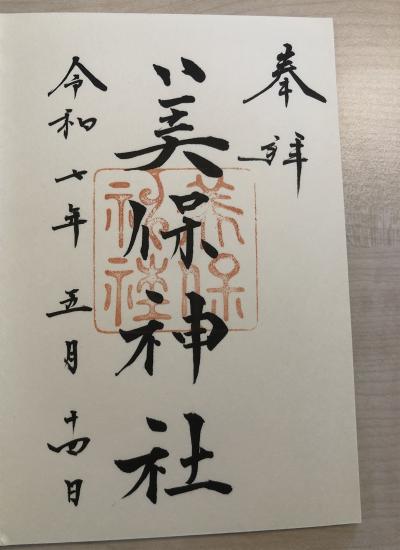 奉拝
美保神社
令和七年五月十四日
美保
神社